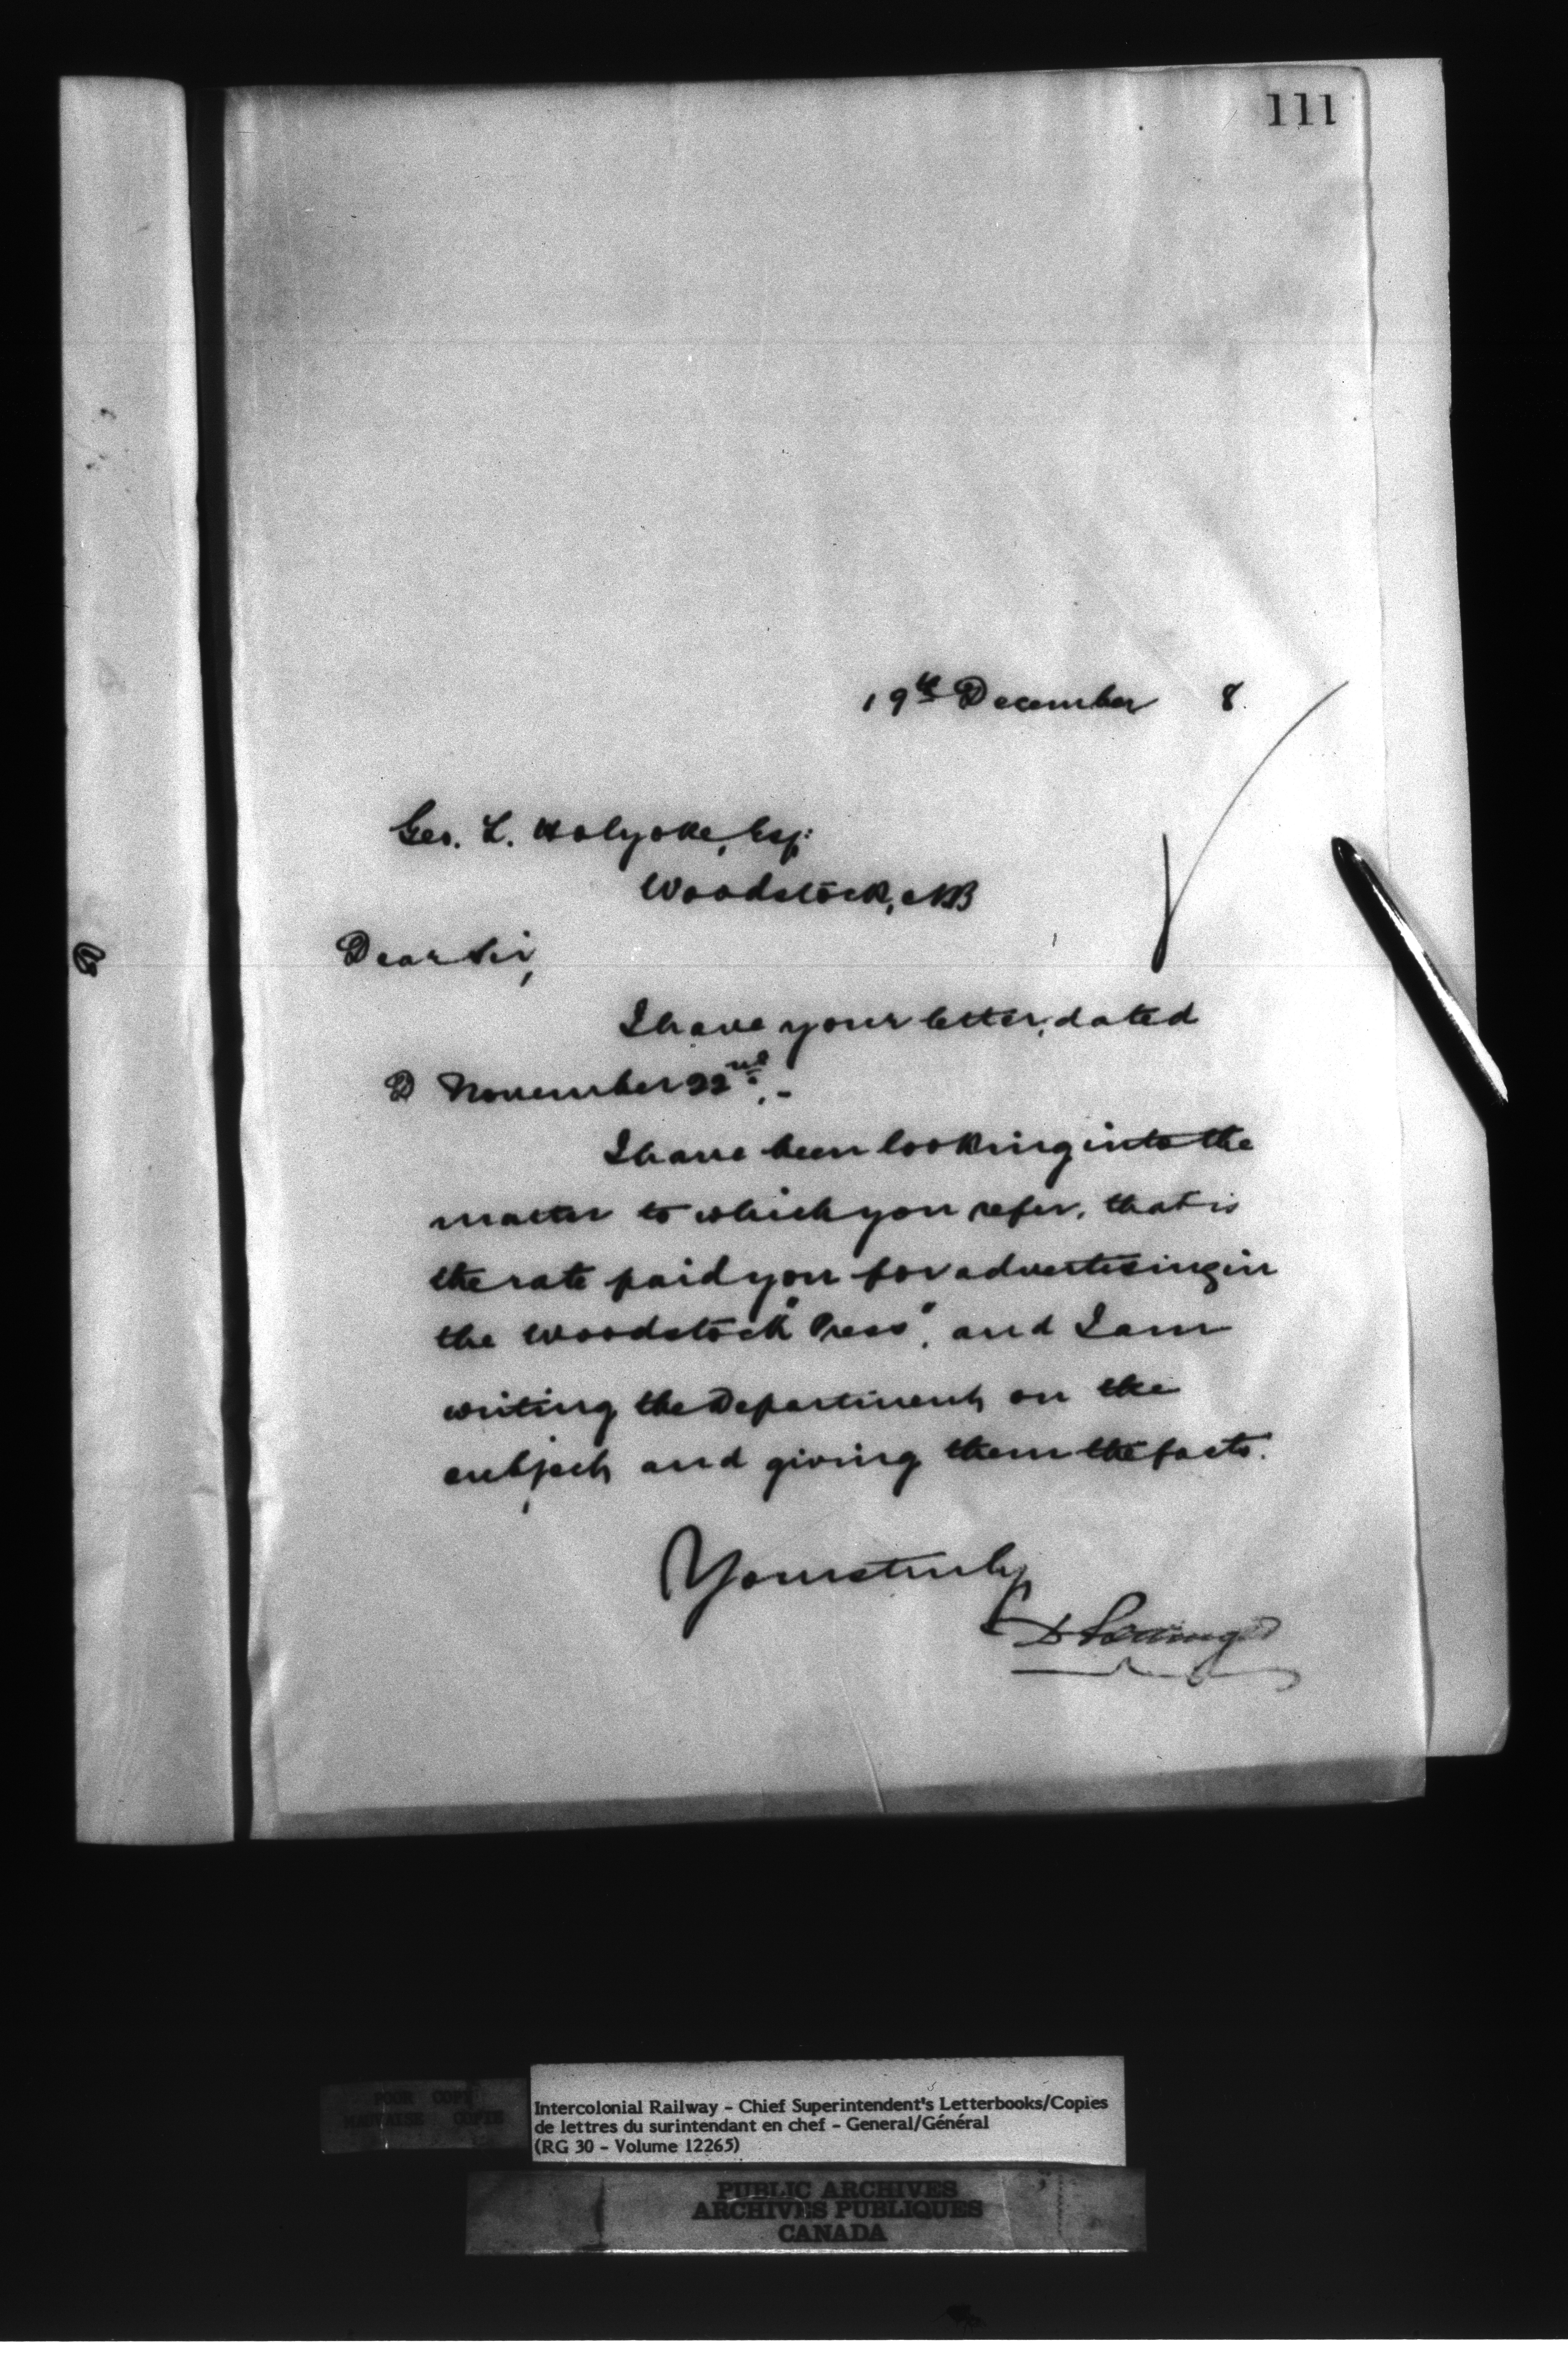 111
19th December 8
Geo. L. Holyoke, Esq:
Woodstock, NB
Dear Sir,
I have your letter, dated
D November 22nd. -
I have been looking into the
matter to which you refer, that is
the rate paid you for advertising in
the Woodstock "Press", and I am
writing the Department on the
subject and giving them the facts.
Yours truly
D Pottinger
POOR COPY
MAUVAISE COPIE
Intercolonial Railway - Chief Superintendent's Letterbooks/Copies
de lettres du surintendant en chef - General/Général
(RG 30 - Volume 12265)
PUBLIC ARCHIVES
ARCHIVES PUBLIQUES
CANADA